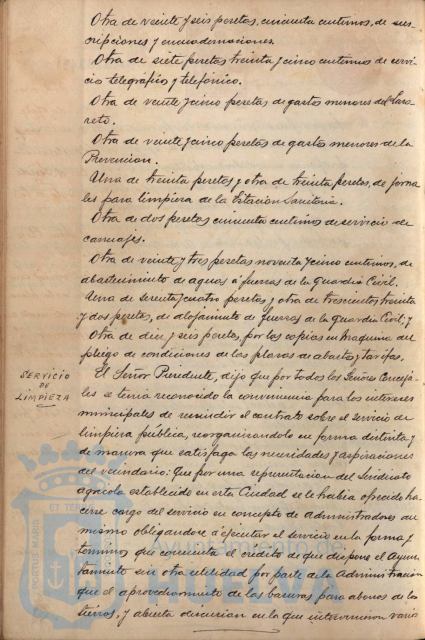 Otra de veinte y seis pesetas, cincuenta centimos, de sus-
cripciones y encuadernaciones.
Otra de siete pesetas treinta y cinco centimos de servi-
cio telegráfico y telefónico.
Otra de veinte y cinco pesetas de gastos menores del Laza-
reto.
Otra de veinte y cinco pesetas de gastos menores de la
Prevencion.
Una de treinta pesetas y otra de treinta pesetas, de jorna-
les para limpieza de la Estacion Sanitaria.
Otra de dos pesetas cincuenta centimos de servicio de
carruajes.
Otra de veinte y tres pesetas noventa y cinco centimos, de
abastecimiento de aguas á fuerzas de la Guardia Civil.
Una de sesenta y cuatro pesetas y otra de trescientas treinta
y dos pesetas, de alojamiento de fuerzas de la Guardia Civil, y
Otra de diez y seis pesetas, por las copias en Maquina del
pliego de condiciones de las plazas de abastos y tarifas.
SERVICIO
DE
LIMPIEZA
El Señor Presidente, dijo que por todos los Señores Conceja-
les se tenia reconocido la conveniencia para los intereses
municipales de rescindir el contrato sobre el servicio de
limpieza pública, reorganizandolo en forma distinta y
de manera que satisfaga las necesidades y aspiraciones
del vecindario: Que por una representacion del Sindicato
agricola establecido en esta Ciudad se le habia ofrecido ha-
cerse cargo del servicio en concepto de administradores del
mismo obligandose á ejecutar el servicio en la forma y
terminos que consienta el crédito en que dispone el Ayun-
tamiento sin otra utilidad por parte de la Administracion
que el aprovechamiento de las basuras para abonos de las
tierras, y abierta discusion en la que intervinieron varios
PORTUS MARIS